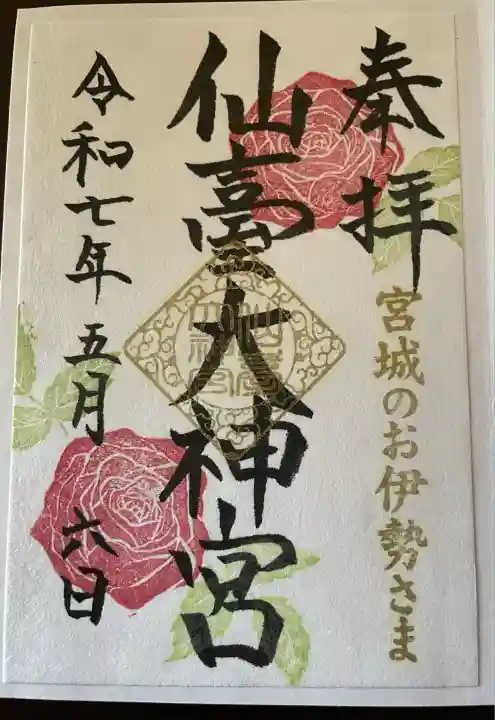 奉拝
宮城のお伊勢さま
仙臺大神宮
令和七年五月六日